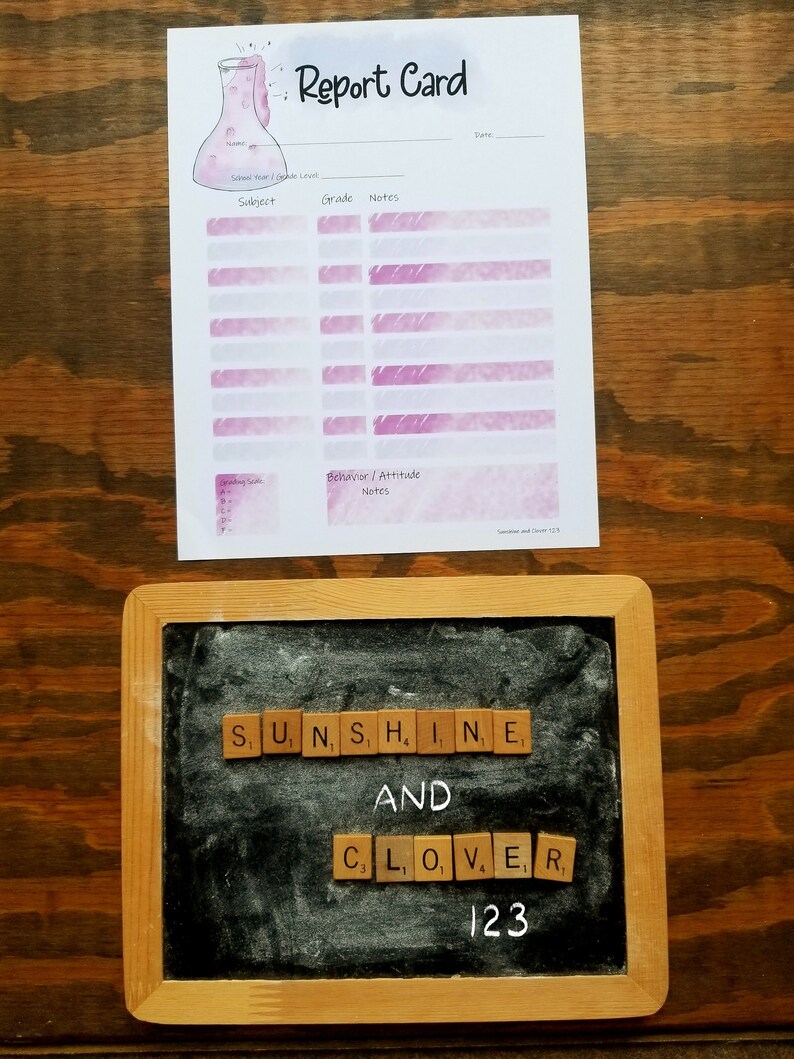 Report Card
Name: Date:
School Year / Grade Level:
Subject Grade Notes
Grading Scale:
A =
B =
C =
D =
F =
Behavior / Attitude
Notes
Sunshine and Clover 123
S1 U1 N1 S1 H4 I1 N1 E1
AND
C3 L1 O1 V4 E1 R1
123